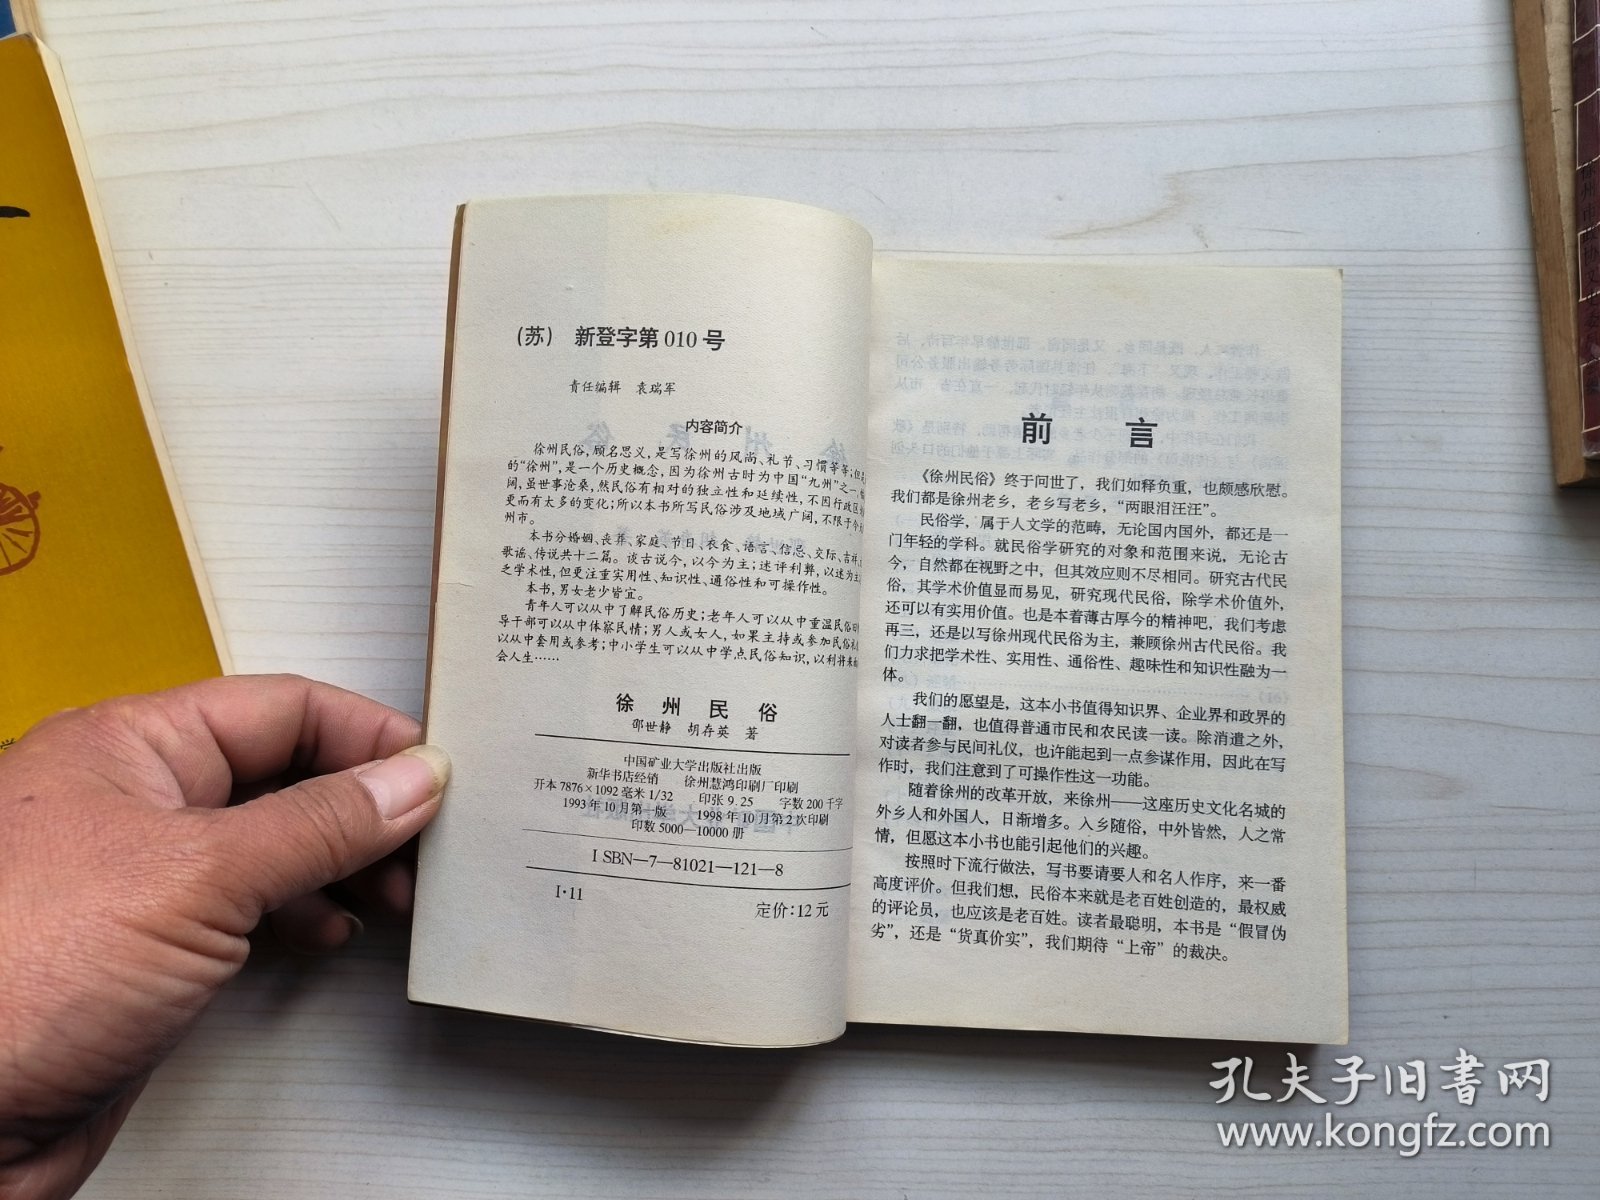 (苏) 新登字第 010 号
责任编辑 袁瑞军
内容简介
徐州民俗,顾名思义,是写徐州的风尚、礼节、习惯等等;但
的“徐州”,是一个历史概念,因为徐州古时为中国“九州”之一,
阔,虽世事沧桑,然民俗有相对的独立性和延续性,不因行政区
更而有太多的变化;所以本书所写民俗涉及地域广阔,不限于今
州市。
本书分婚姻、丧葬、家庭、节日、衣食、语言、信忌、交际、吉祥、
歌谣、传说共十二篇。谈古说今,以今为主;述评利弊,以述为主
乏学术性,但更注重实用性、知识性、通俗性和可操作性。
本书,男女老少皆宜。
青年人可以从中了解民俗历史;老年人可以从中重温民俗
导干部可以从中体察民情;男人或女人,如果主持或参加民俗
以从中套用或参考;中小学生可以从中学点民俗知识,以利将来
会人生……
徐 州 民 俗
邵世静 胡存英 著
中国矿业大学出版社出版
新华书店经销 徐州慧鸿印刷厂印刷
开本 7876×1092 毫米 1/32 印张 9.25 字数 200 千字
1993 年 10 月第一版 1998 年 10 月第 2 次印刷
印数 5000—10000 册
I SBN—7—81021—121—8
I·11
定价:12 元
前 言
《徐州民俗》终于问世了,我们如释负重,也颇感欣慰。
我们都是徐州老乡,老乡写老乡,“两眼泪汪汪”。
民俗学,属于人文学的范畴,无论国内国外,都还是一
门年轻的学科。就民俗学研究的对象和范围来说,无论古
今,自然都在视野之中,但其效应则不尽相同。研究古代民
俗,其学术价值显而易见,研究现代民俗,除学术价值外,
还可以有实用价值。也是本着薄古厚今的精神吧,我们考虑
再三,还是以写徐州现代民俗为主,兼顾徐州古代民俗。我
们力求把学术性、实用性、通俗性、趣味性和知识性融为一
体。
我们的愿望是,这本小书值得知识界、企业界和政界的
人士翻一翻,也值得普通市民和农民读一读。除消遣之外,
对读者参与民间礼仪,也许能起到一点参谋作用,因此在写
作时,我们注意到了可操作性这一功能。
随着徐州的改革开放,来徐州——这座历史文化名城的
外乡人和外国人,日渐增多。入乡随俗,中外皆然,人之常
情,但愿这本小书也能引起他们的兴趣。
按照时下流行做法,写书要请要人和名人作序,来一番
高度评价。但我们想,民俗本来就是老百姓创造的,最权威
的评论员,也应该是老百姓。读者最聪明,本书是“假冒伪
劣”,还是“货真价实”,我们期待“上帝”的裁决。
孔夫子旧书网
www.kongfz.com